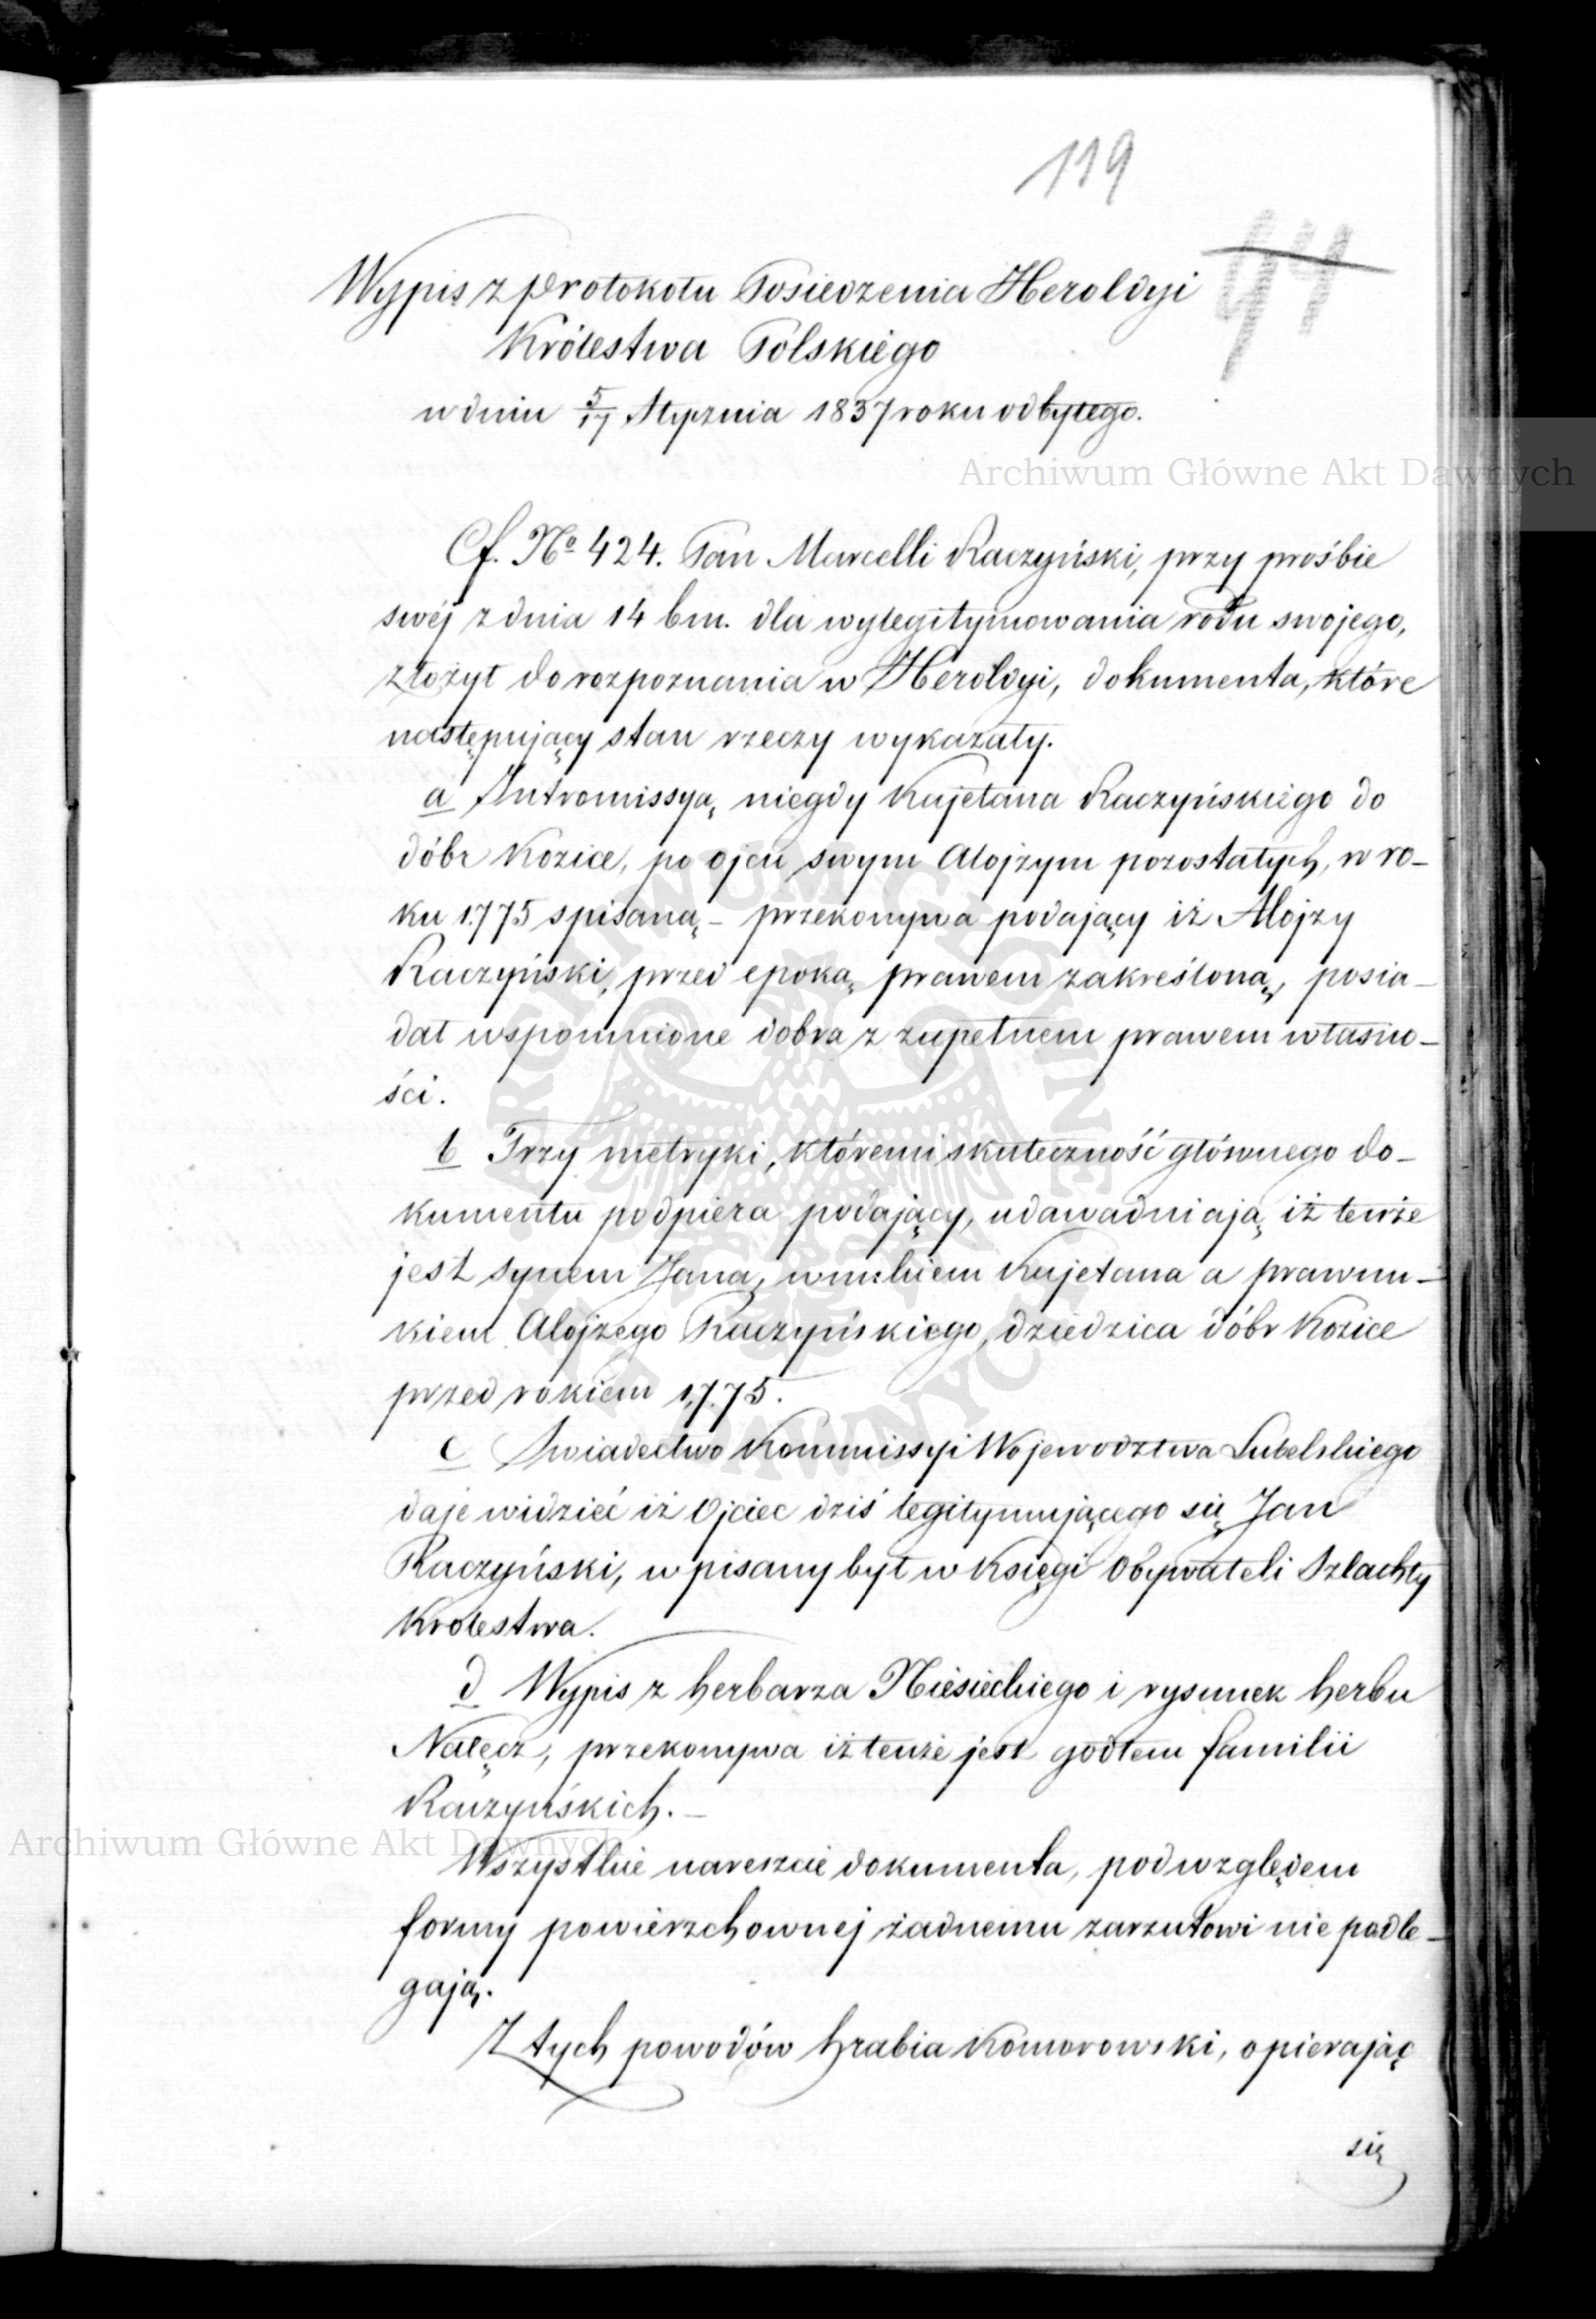 119
44
Wypis z Protokołu Posiedzenia Heroldyi
Królestwa Polskiego
w dniu 5/17 Stycznia 1837 roku odbytego.
Archiwum Główne Akt Dawnych
Cf. No 424. Pan Marcelli Raczyński, przy prośbie
swéj z dnia 14 bm. dla wylegitymowania rodu swojego,
złożył do rozpoznania w Heroldyi, dokumenta, które
następujący stan rzeczy wykazały.
a Intromissyą niegdy Kajetana Raczyńskiego do
dóbr Kozice, po ojcu swym Alojzym pozostałych, w ro-
ku 1775 spisaną - przekonywa podający iż Alojzy
Raczyński, przed epoką prawem zakreśloną, posia-
dał wspomnione dobra z zupełnem prawem własno-
ści.
b Trzy metryki, któremi skuteczność głównego do-
kumentu podpiera podający, udawadniają iż tenże
jest synem Jana, wnukiem Kajetana a prawnu-
kiem Alojzego Raczyńskiego, dziedzica dóbr Kozice
przed rokiem 1775.
c Swiadectwo Kommissyi Wojewodztwa Lubelskiego
daje widzieć iż Ojciec dziś legitymującego się Jan
Raczyński, wpisany był w Księgi Obywateli Szlachty
Krolestwa.
d Wypis z herbarza Niesieckiego i rysunek herbu
Nałęcz, przekonywa iż tenże jest godłem familii
Raczyńskich. -
Archiwum Główne Akt Dawnych
Wszystkie nareszcie dokumenta, pod względem
formy powierzchownej żadnemu zarzutowi nie podle-
gają.
Z tych powodów hrabia Komorowski, opierając
się
ARCHIWUM GŁÓWNE AKT DAWNYCH